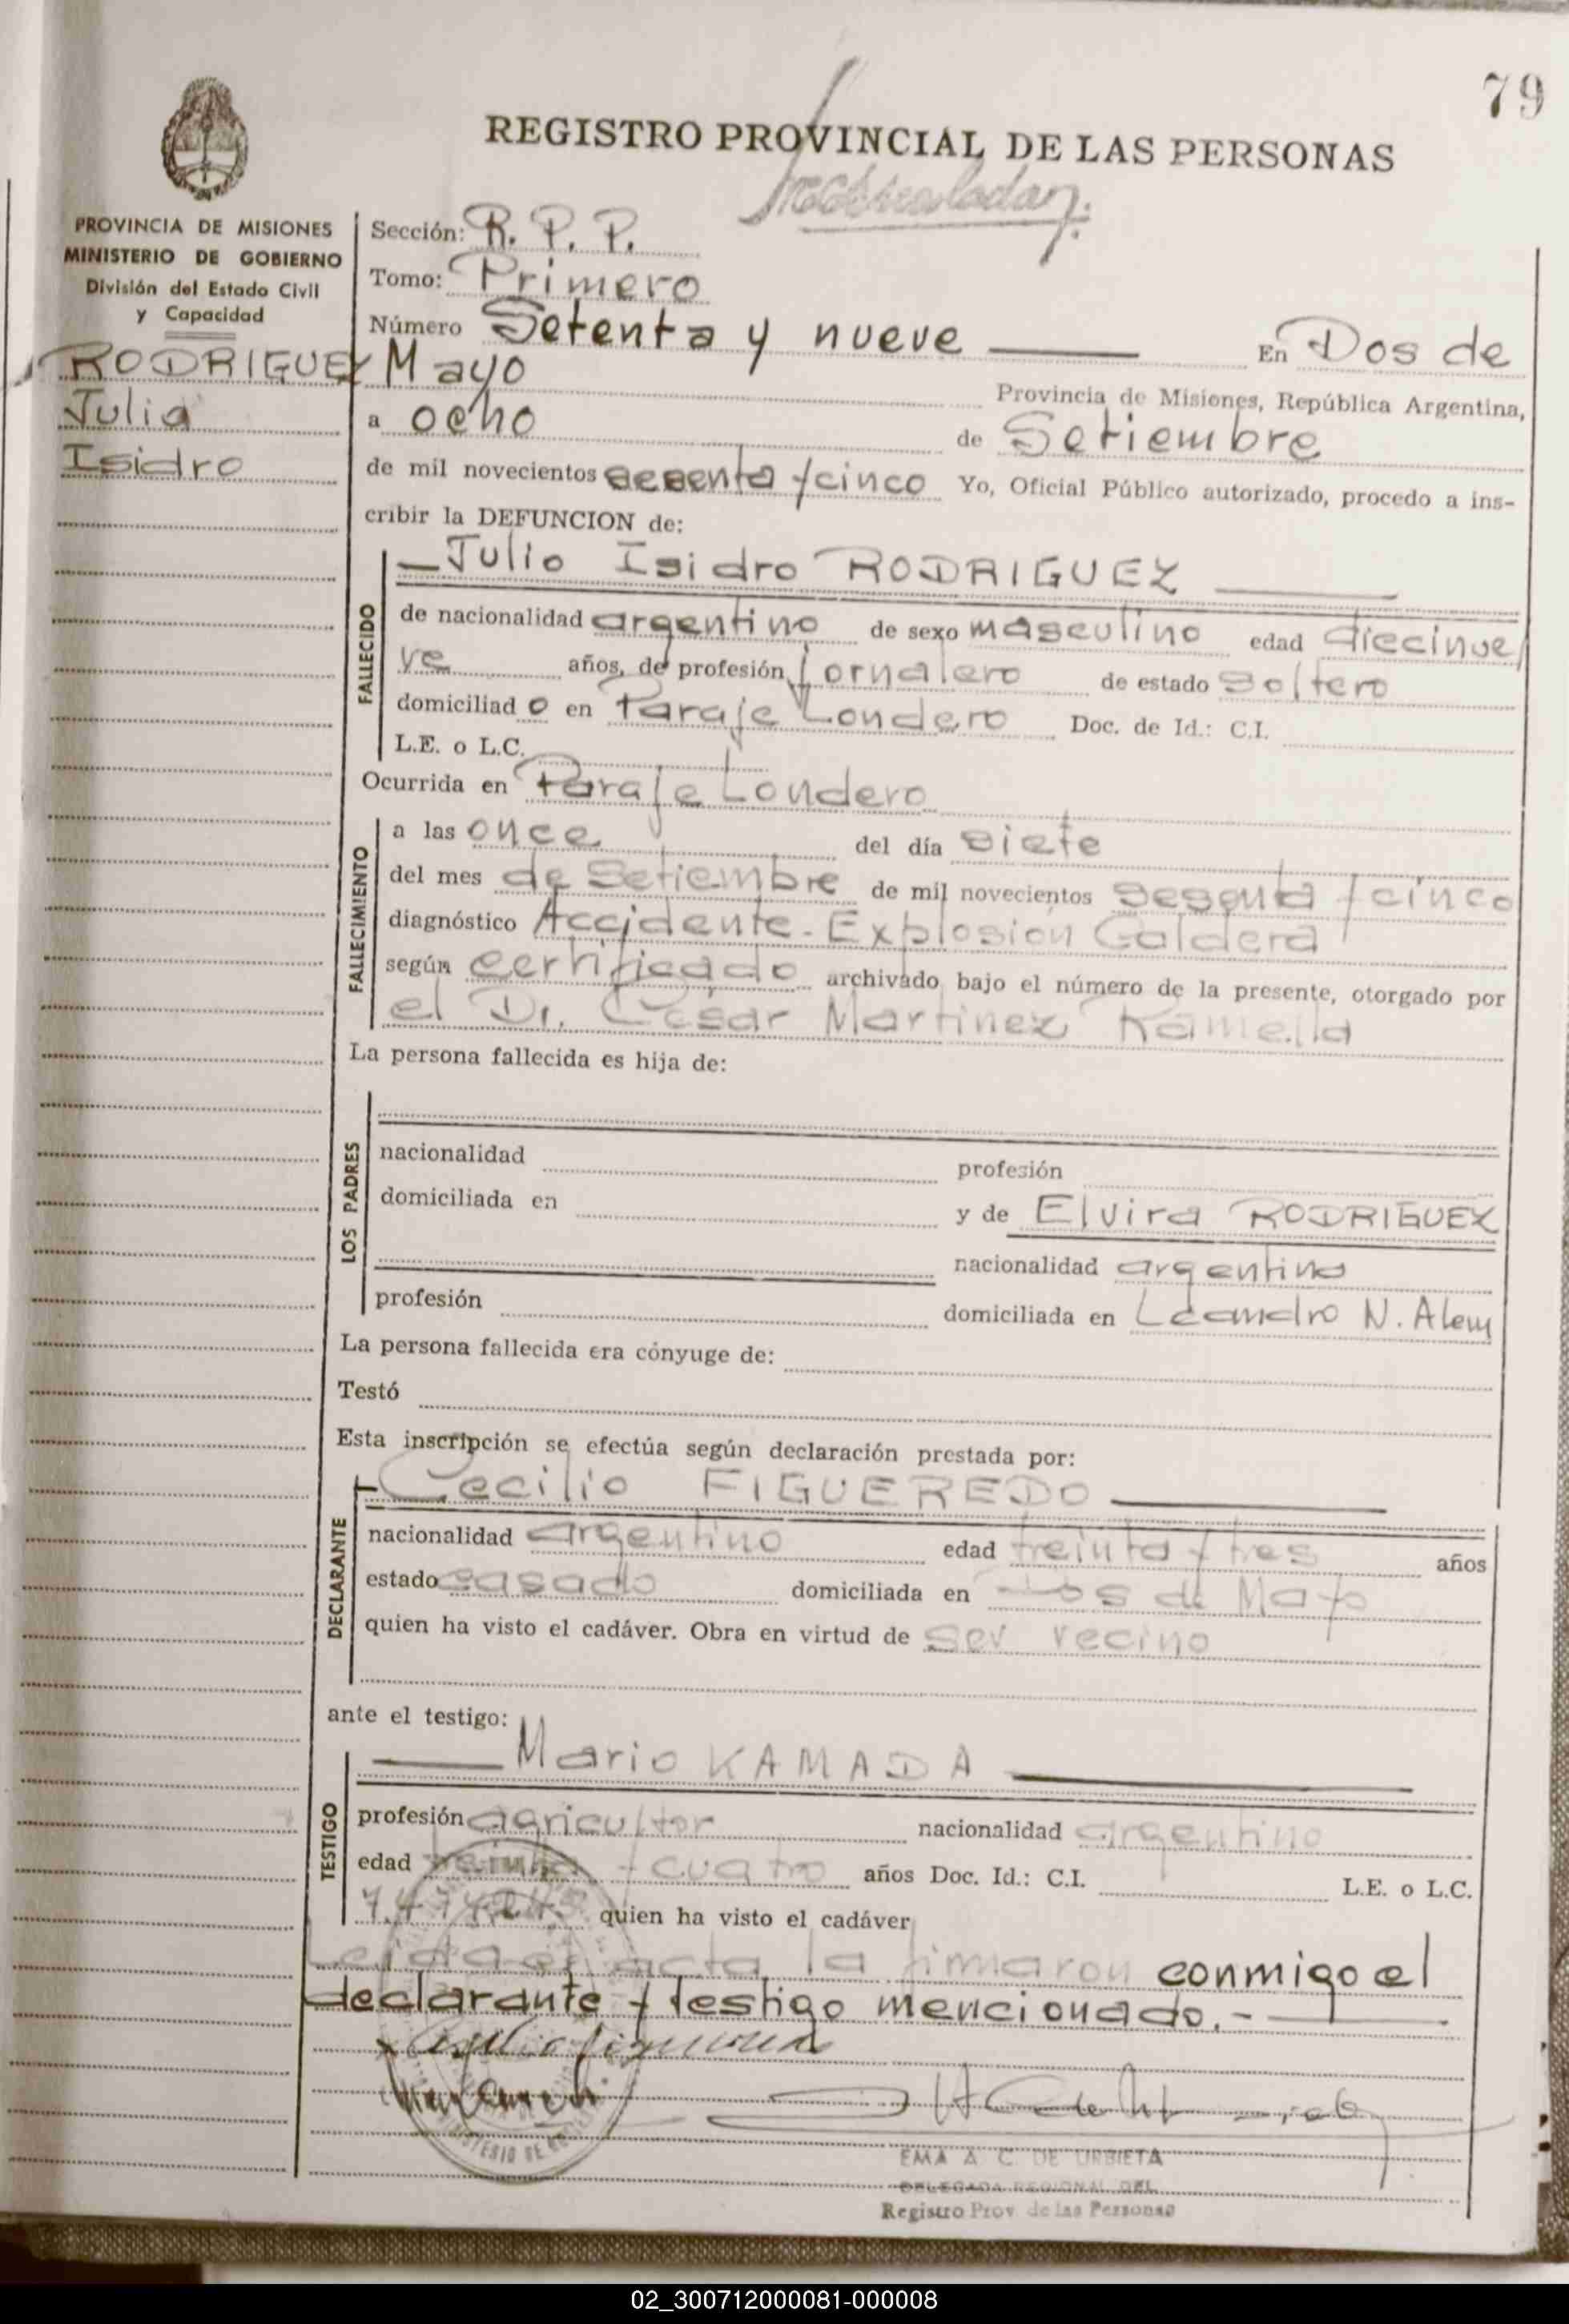 79
REGISTRO PROVINCIAL DE LAS PERSONAS
PROVINCIA DE MISIONES
MINISTERIO DE GOBIERNO
División del Estado Civil
y Capacidad
RODRIGUEZ
Julio
Isidro
Sección: R. P. P.
Tomo: Primero
Número Setenta y nueve En Dos de
Mayo Provincia de Misiones, República Argentina,
a ocho de Setiembre
de mil novecientos sesenta y cinco Yo, Oficial Público autorizado, procedo a ins-
cribir la DEFUNCION de:
Julio Isidro RODRIGUEZ
FALLECIDO
de nacionalidad argentino de sexo masculino edad diecinue
ve años, de profesión Jornalero de estado soltero
domiciliado en Paraje Londero Doc. de Id.: C.I.
L.E. o L.C.
Ocurrida en Paraje Londero
FALLECIMIENTO
a las once del día siete
del mes de Setiembre de mil novecientos sesenta y cinco
diagnóstico Accidente - Explosión Caldera
según certificado archivado bajo el número de la presente, otorgado por
el Dr. César Martinez Kamella
La persona fallecida es hija de:
LOS PADRES
nacionalidad profesión
domiciliada en y de Elvira RODRIGUEZ
nacionalidad argentina
profesión domiciliada en Leandro N. Alem
La persona fallecida era cónyuge de:
Testó
Esta inscripción se efectúa según declaración prestada por:
Cecilio FIGUEREDO
DECLARANTE
nacionalidad argentino edad treinta y tres años
estado casado domiciliada en Dos de Mayo
quien ha visto el cadáver. Obra en virtud de ser vecino
ante el testigo:
Mario KAMADA
TESTIGO
profesión agricultor nacionalidad argentino
edad treinta y cuatro años Doc. Id.: C.I. L.E. o L.C.
quien ha visto el cadáver
Leida el acta la firmaron conmigo el
declarante y testigo mencionado.-
EMA A C. DE URBIETA
DELEGADA REGIONAL DEL
Registro Prov. de las Personas
02_300712000081-000008